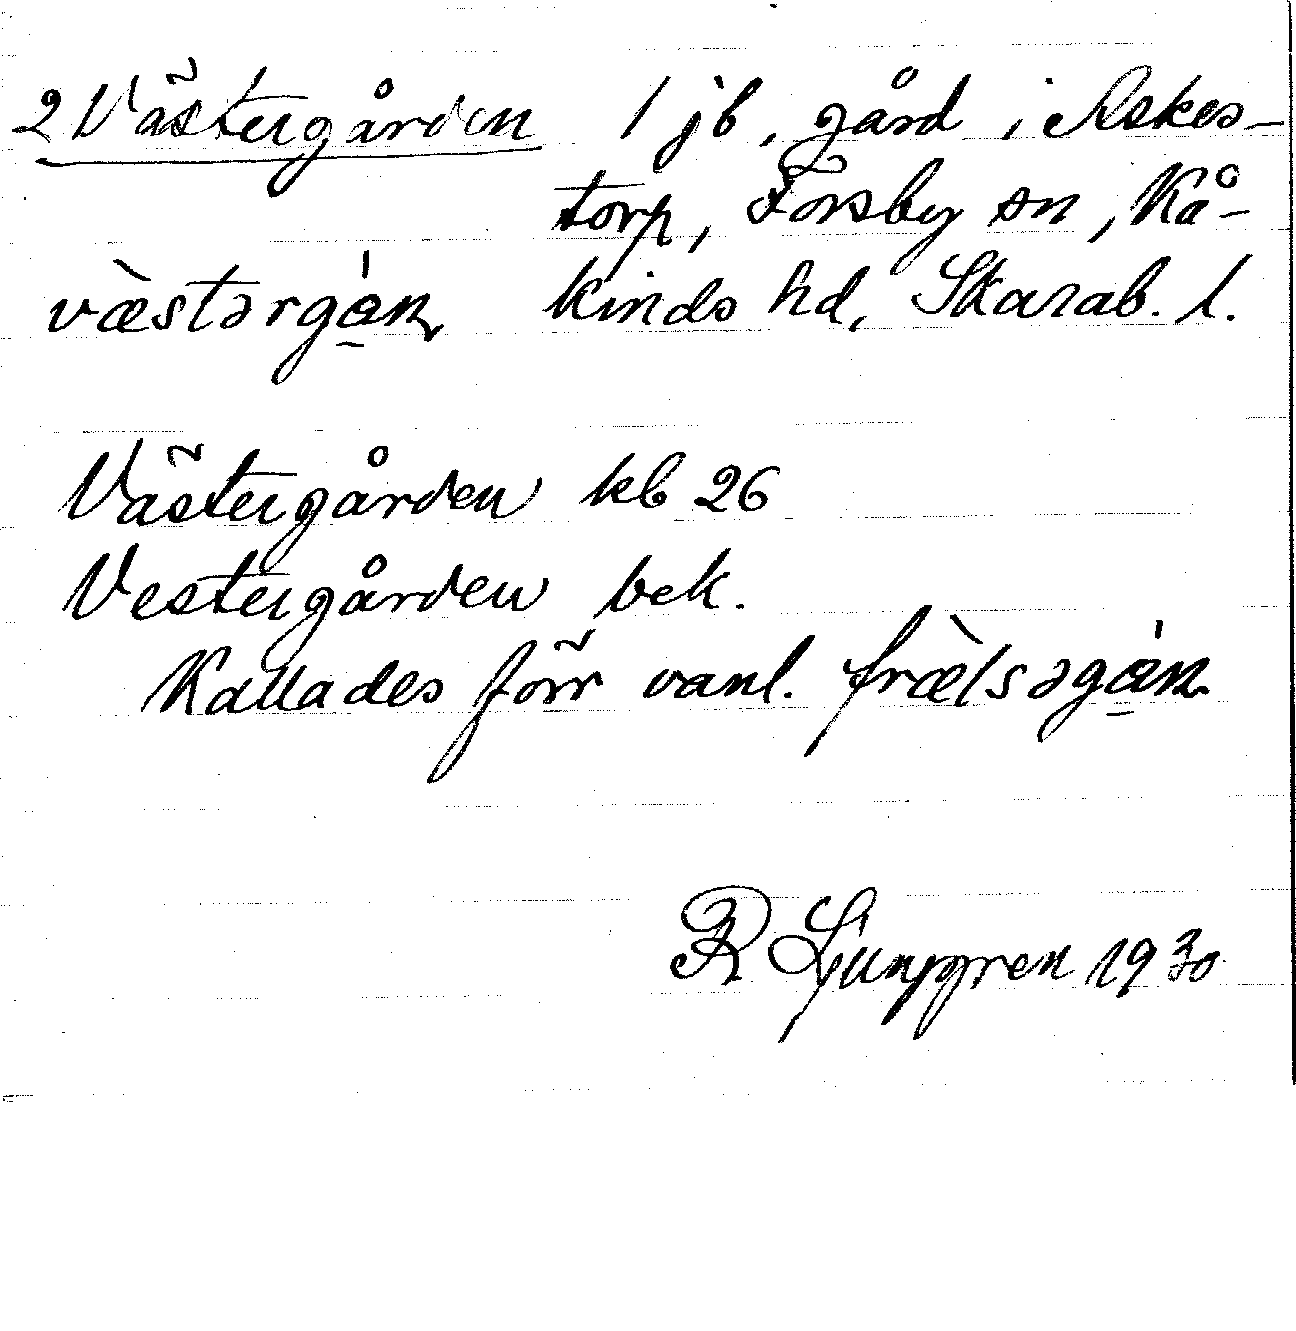 2 Västergården 1 jb, gård i Askes-
torp, Forsby sn, Kå-
væ̀stərgá̠n kinds hd, Skarab. l.
Västergården kb 26
Vestergården bek.
Kallades förr vanl. fræ̀lsəgá̠n
R Ljunggren 1930